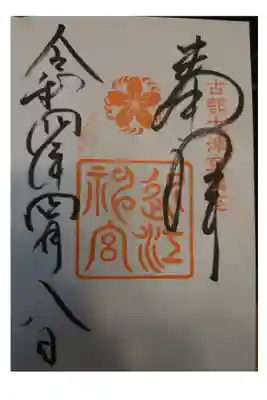 奉拝
古都大津宮鎮座
近江
神宮
令和四年四月八日